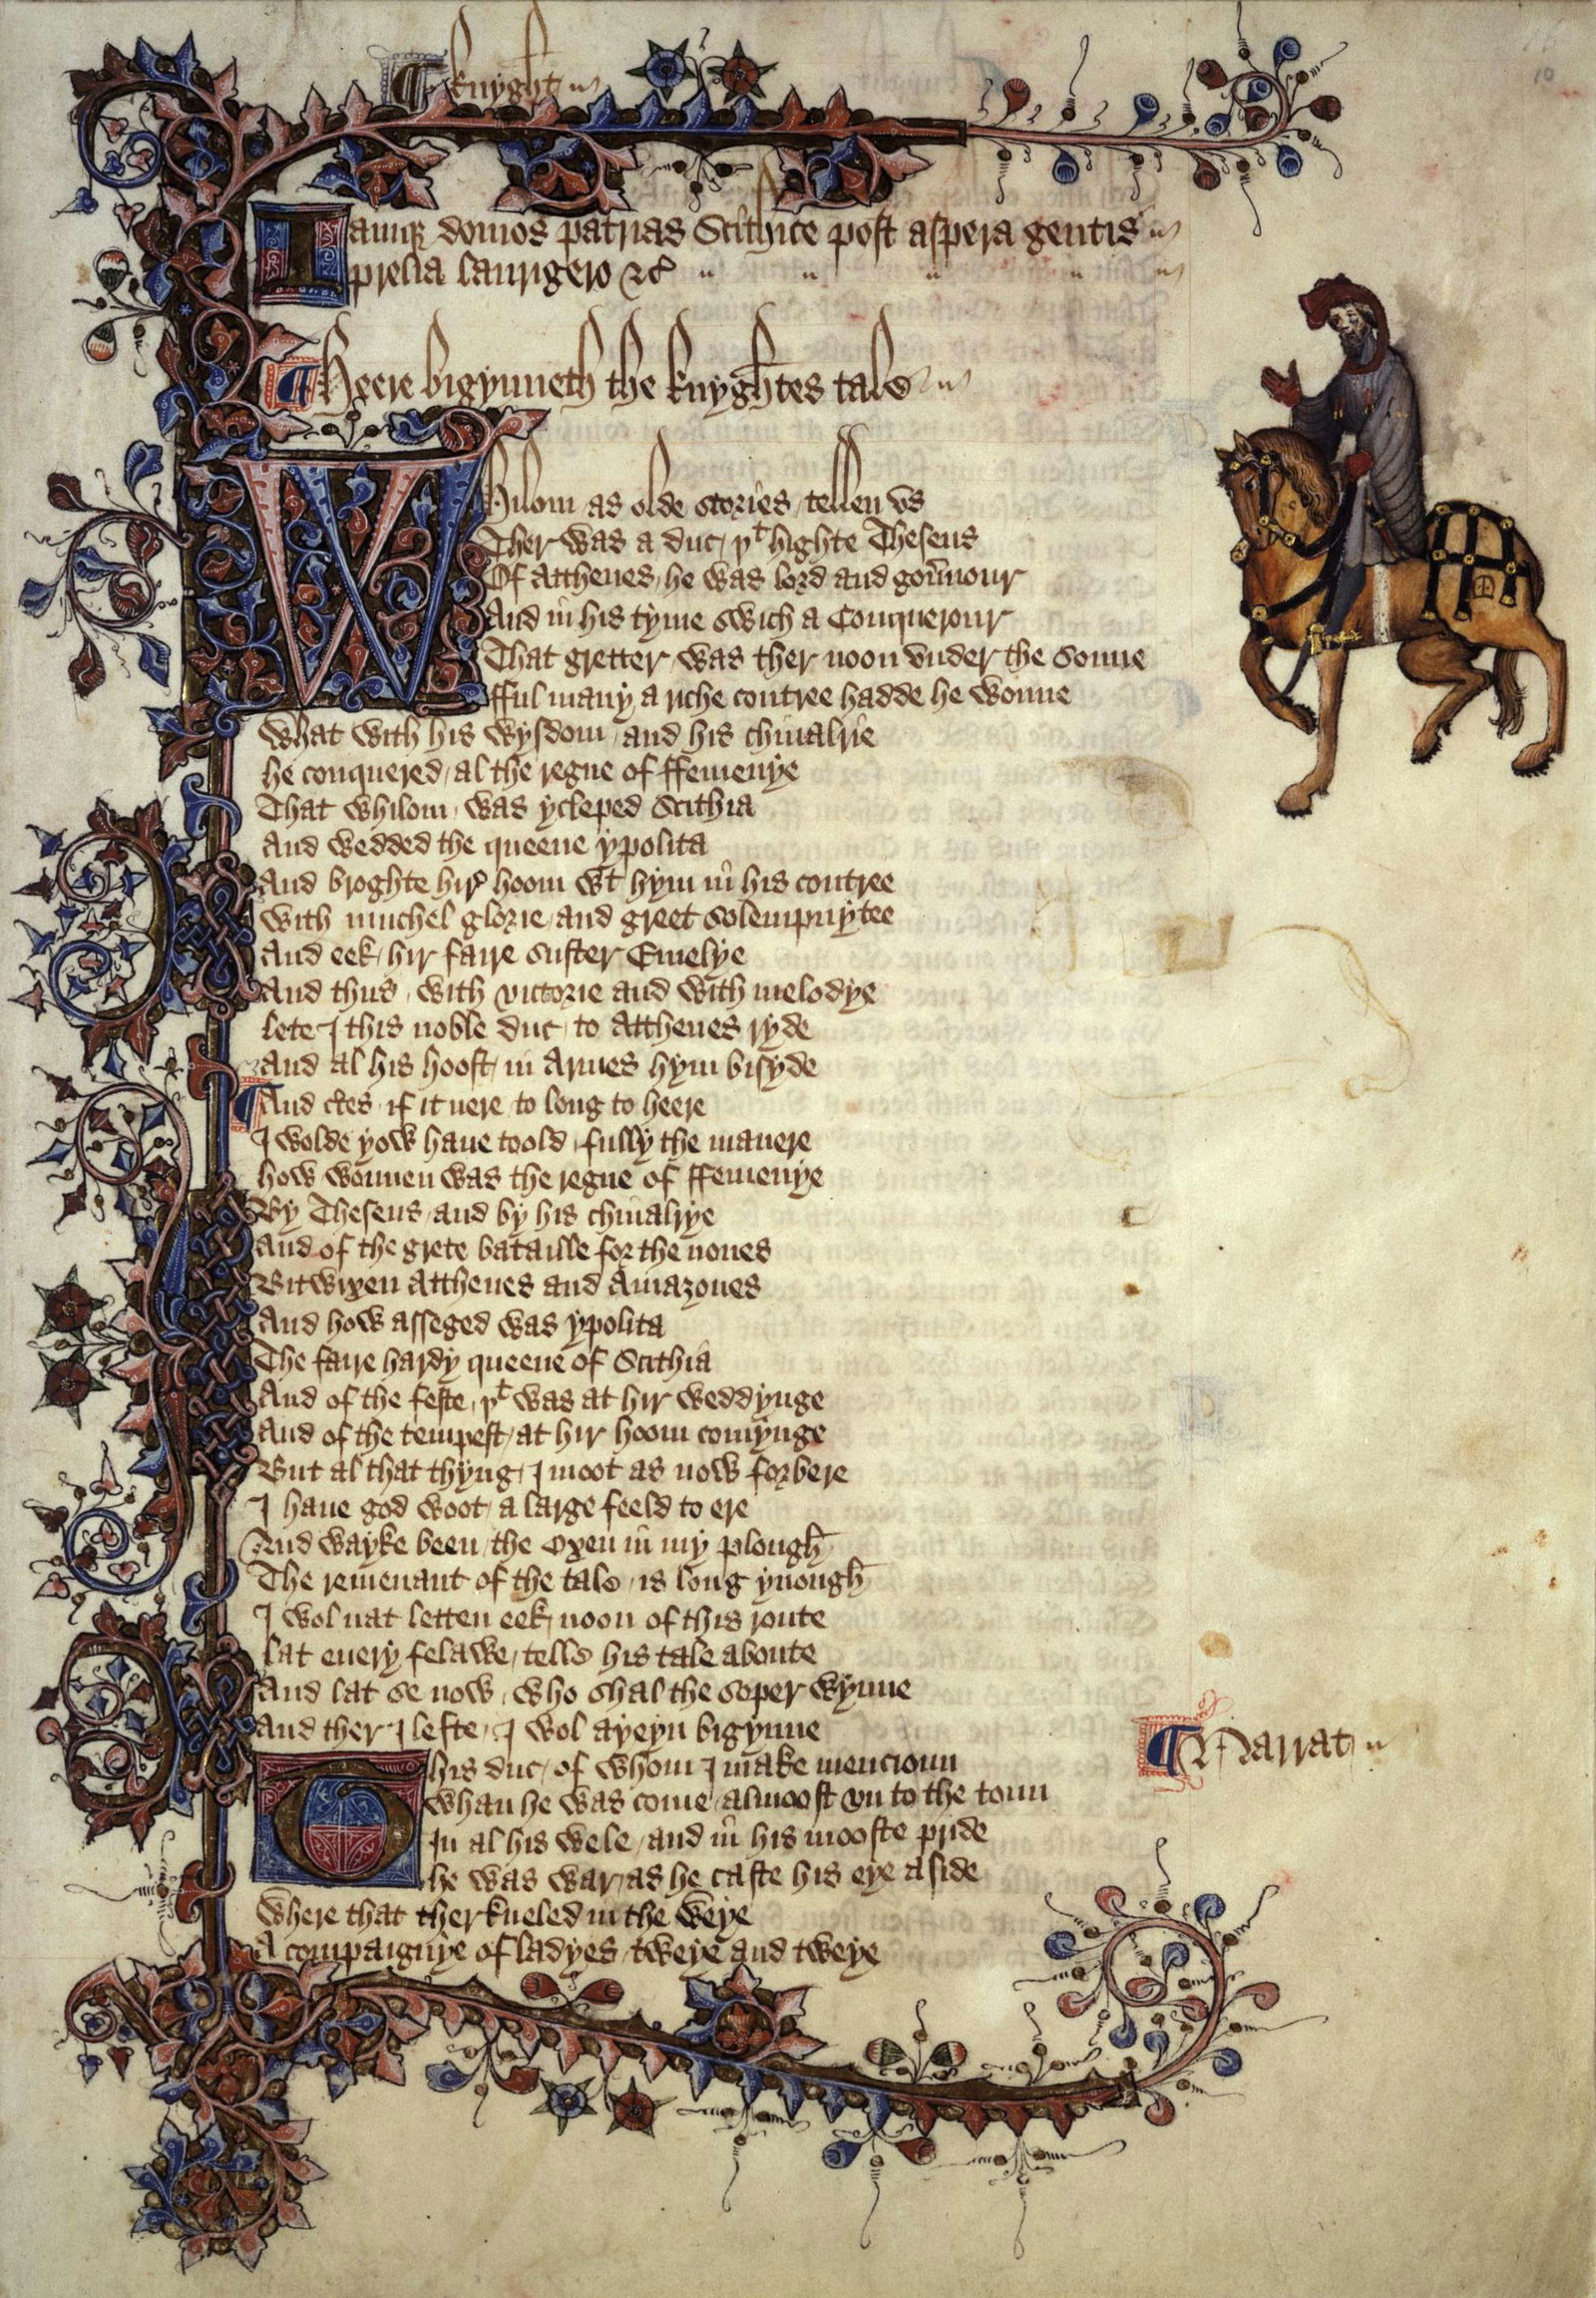 ¶ knyght
Iamq; domos patrias Scithice post aspera gentis
prelia laurigero &c
¶ Heere bigynneth the knyghtes tale
Whilom as olde stories tellen vs
Ther was a duc þt highte Theseus
Of Atthenes he was lord and gou̅nour
And in his tyme swich a Conquerour
That gretter was ther noon vnder the sonne
fful many a riche contree hadde he wonne
What with his wysdom and his chiualrie
he conquered al the regne of ffemenye
That whilom was ycleped Scithia
And wedded the queene ypolita
And broghte hir hoom wt hym in his contree
With muchel glorie and greet solempnytee
And eek hir faire suster Emelye
And thus with victorie and with melodye
lete I this noble duc to Atthenes ryde
And al his hoost in Armes hym bisyde
¶ And ctes if it nere to long to heere
I wolde yow haue toold fully the manere
how wonnen was the regne of ffemenye
By Theseus and by his chiualrye
And of the grete bataille for the nones
Bitwixen Atthenes and Amazones
And how asseged was ypolita
The faire hardy queene of Scithia
And of the feste þt was at hir weddynge
And of the tempest at hir hoom comynge
But al that thyng I moot as now forbere
I haue god woot a large feeld to ere
And wayke been the Oxen in my plough
The remenant of the tale is long ynough
I wol nat letten eek noon of this route
lat euery felawe telle his tale aboute
And lat se now who shal the soper wynne
And ther I lefte I wol ayeyn bigynne
This duc of whom I make mencioun
whan he was come almoost vn to the toun
In al his wele and in his mooste pride
he was war as he caste his eye aside
Where that ther kneled in the weye
A compaignye of ladyes tweye and tweye
¶ Narrat
10